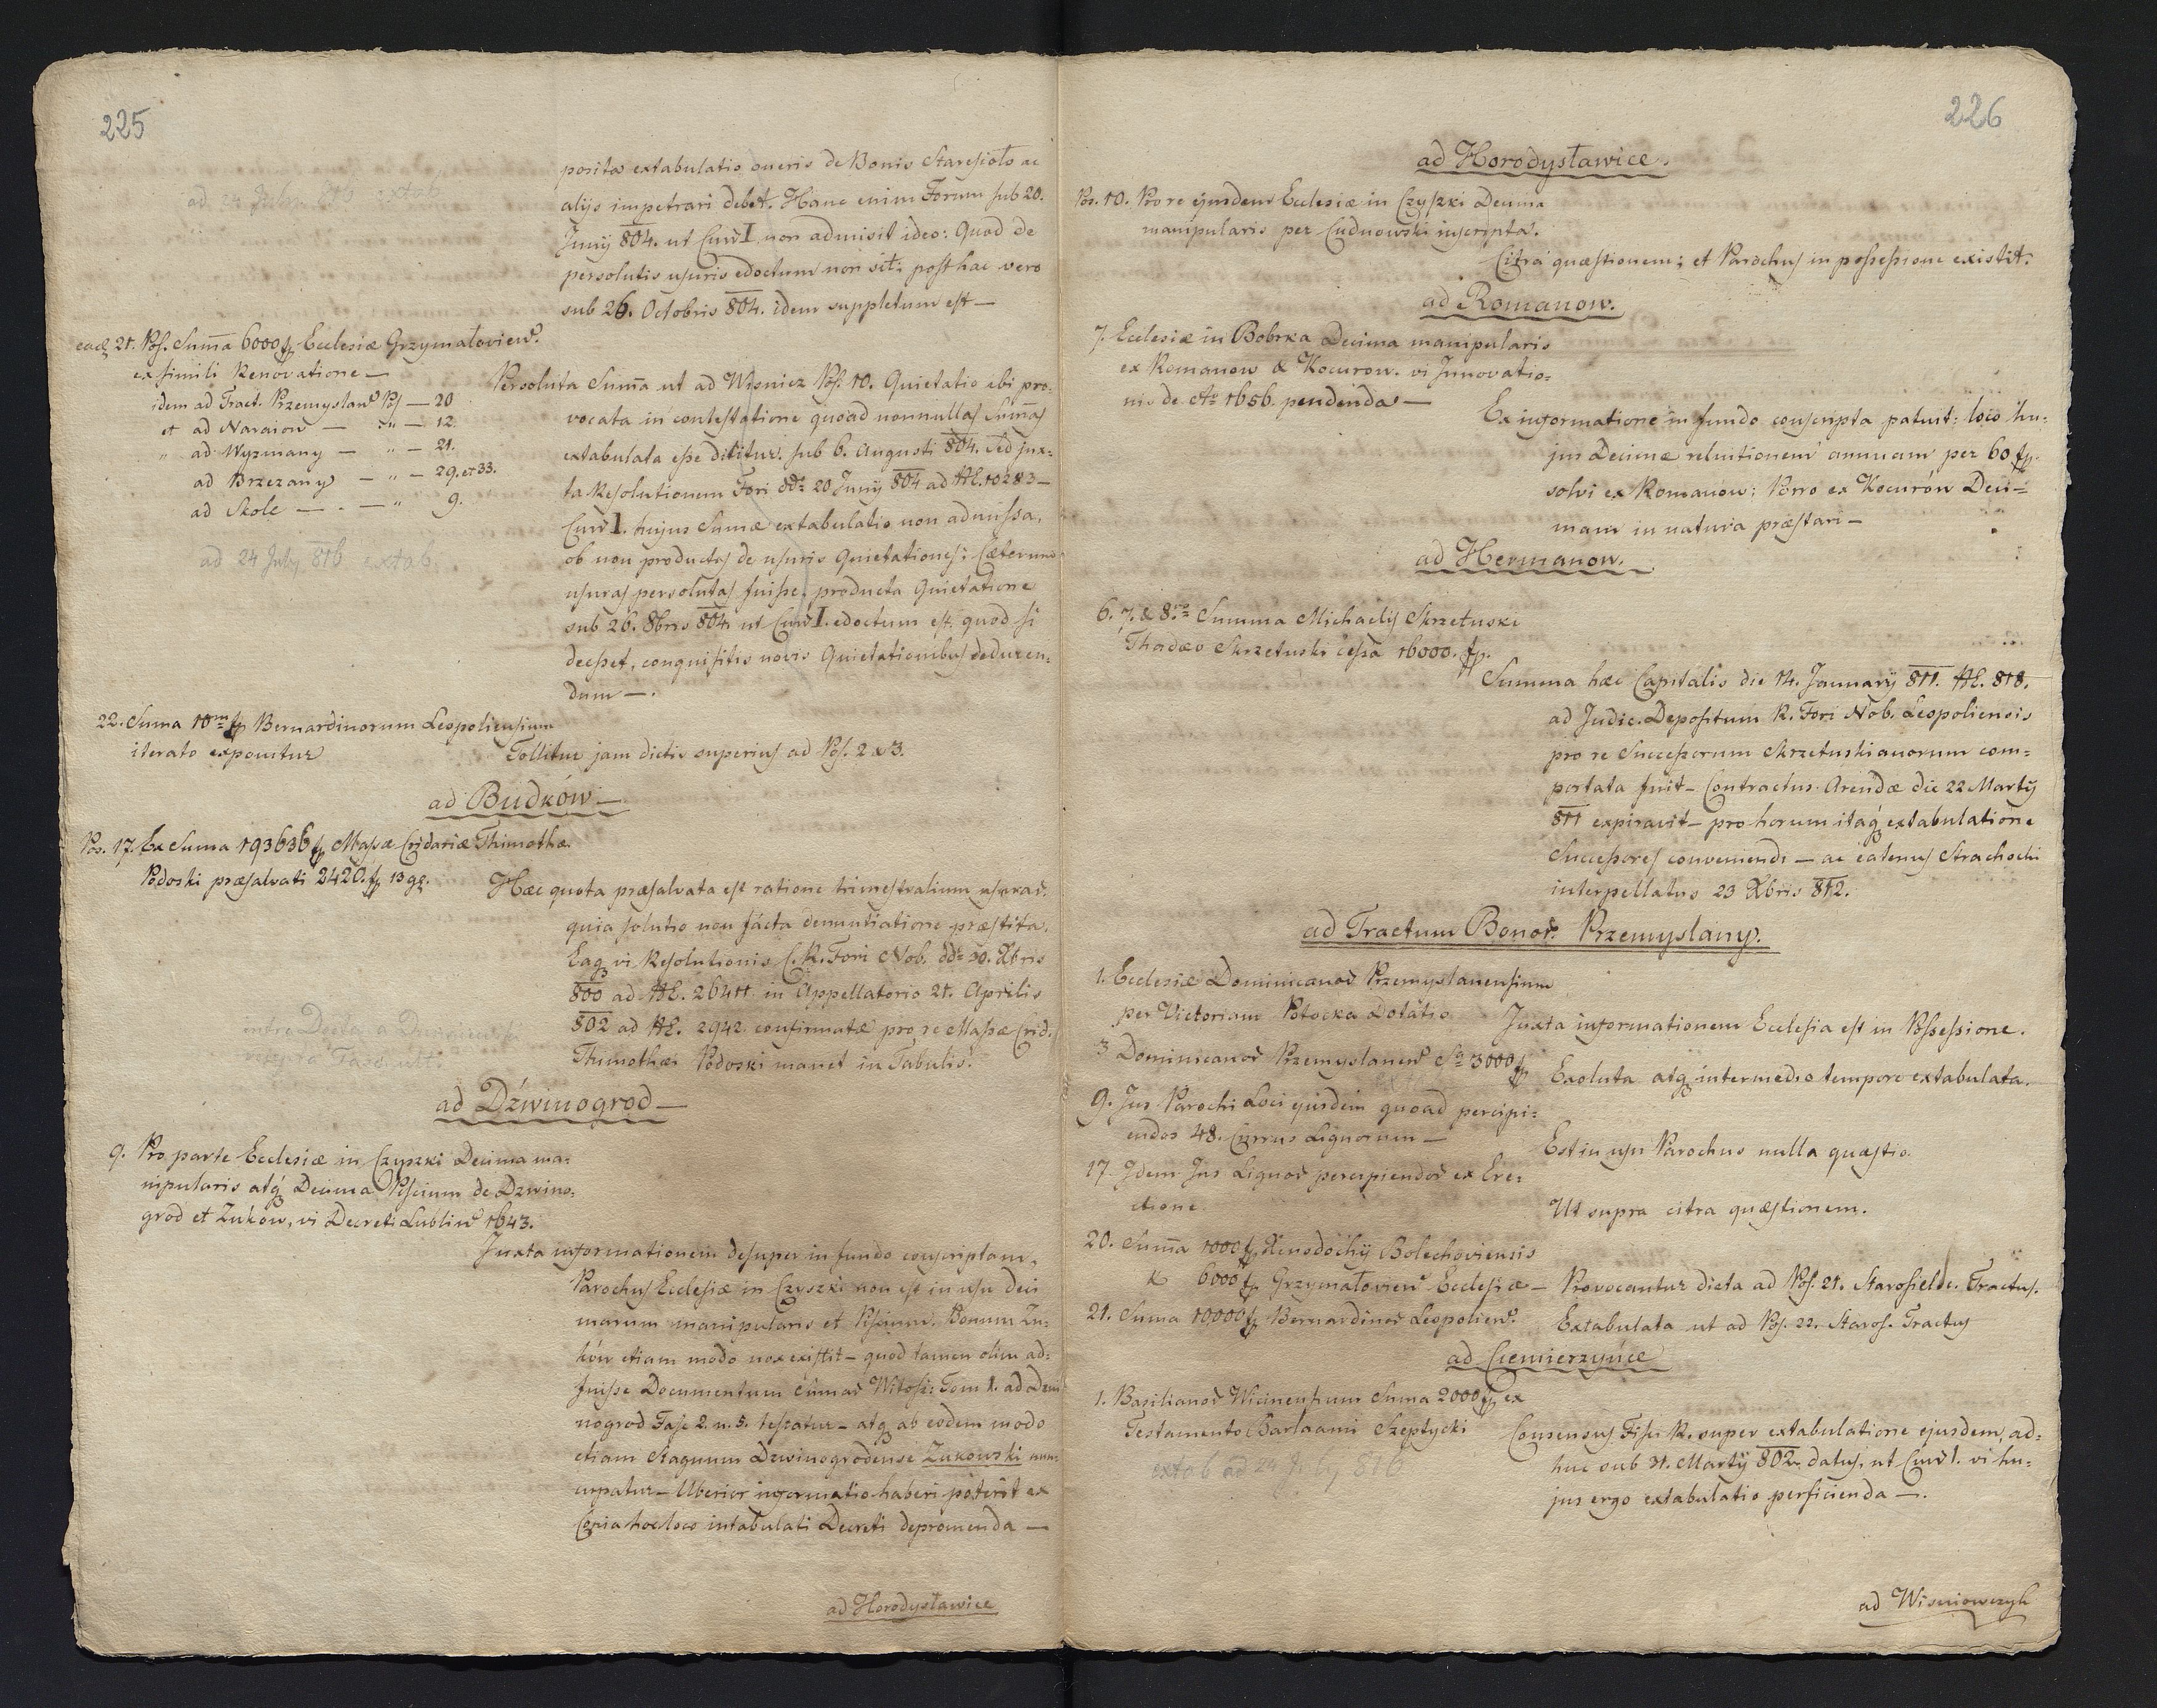 225
posita extabulatio oneris de Bonis Staresioło ac
alijs impetrari debet. Hanc enim Forum sub 20.
Junij 804. ut Curr I non admisit ideo: Quod de
persolutis usuris edoctum non sit; post hac vero
sub 26. Octobris 804. idem suppletum est —
ad 24 July 816 extab
eadq 21. Pos. Suma 6000 fp Ecclesiæ Grzymałoview.
ex simili Renovatione —
idem ad Tract. Przemyslan Pos — 20
et ad Naraiow — " — 12
" ad Wyzniany — " — 21.
ad Brzezany — " — 29. et 33.
ad Skole — . — " 9.
ad 24 July 816 extab.
Persoluta Suma ut ad Wisnicz Pos. 10. Quietatio ibi pro-
vocata in contestatione quoad nonnullas Sumas
extabulata esse dititur. sub 6. Augusti 804. sed jux-
ta Resolutionem Fori dd° 20 Junij 804 ad №. 10283 —
Curr I. hujus Sumæ extabulatio non admissa,
ob non productas de usuris Quietationes: Cæterum
usuras persolutas fuisse, producta Quietatione
sub 26. 8bris 804. ut Curr I. edoctum est, quod si
deesset, conquisitis novis Quietationibus deducen-
dum — .
22. Suma 10m fp Bernardinorum Leopoliensium
iterato exponitur
Tollitur jam dictis superius ad Pos. 2 & 3.
ad Budków —
Pos. 17. Ex Suma 193636 fp Massæ Cridariæ Thimothæ
Podoski præsalvati 2420. fp 13 gg.
Hæc quota præsalvata est ratione trimestralium usurar.
quia solutio non facta denuntiatione præstita.
Eaq vi Resolutionis C. R. Fori Nob. dd° 30. Xbris
800 ad №. 26411 in Appellatorio 21. Aprilis
802 ad №. 2942. confirmatæ pro re Massæ Crid.
Thimothæi Podoski manet in Tabulis.
ad Dźwinogrod —
9. Pro parte Ecclesiæ in Czyszki Decima ma-
nipularis atq Decima Piscium de Dzwino-
grod et Zuków, vi Decreti Lublin 1643.
Juxta informationem desuper in fundo conscriptam,
Parochus Ecclesiæ in Czyszki non est in usu deci
marum manipularis et Piscium. Bonum Zu-
ków etiam modo non existit — quod tamen olim ad-
fuisse Documentum Sumar Witosł: Tom I. ad Dzwi
nogrod Fasc 2. n. 5. testatur — atq ab eodem modo
etiam Stagnum Dzwinogrodense Zukowski nun-
cupatur — Uberior informatio haberi poterit ex
Copia hocloco intabulati Decreti depromenda —
ad Horodysławice
226
ad Horodysławice.
Pos. 10. Pro re ejusdem Ecclesiæ in Czyszki Decima
manipularis per Cudnowski inscripta.
Citra quæstionem; et Parochus in possessione existit.
ad Romanow.
7. Ecclesiæ in Bobrka Decima manipularis
ex Romanow & Kocurow. vi Innovatio-
nis de A° 1656. pendenda —
Ex informatione in fundo conscripta patuit: loco hu-
jus Decimæ reluitionem annuam per 60 fp.
solvi ex Romanow; Porro ex Kocurów Deci-
mam in natura præstari —
ad Hermanow.
6. 7. & 8va Summa Michaelis Skrzetuski
Thadæo Skrzetuski cessa 16000. fp.
Summa hæc Capitalis die 14. January 811. №. 818.
ad Judic. Depositum R. Fori Nob. Leopoliensis
pro re Successorum Skrzetuskianorum com-
portata fuit — Contractus Arendæ die 22 Marty
811 expiravit — pro horum itaq extabulatione
Successores conveniendi — ac eatenus Strachocki
interpellatus 23 Xbris 812.
ad Tractum Bonor. Przemyslany.
1. Ecclesiæ Dominicanor Przemyslanensium
per Victoriam Potocka Dotatio
Juxta informationem Ecclesia est in Possessione.
3 Dominicanor Przemyslanen Sa 3000 fp
Exoluta atq intermedio tempore extabulata.
9. Jus Parochi Loci ejusdem quoad percipi-
endos 48. Currus Lignorum —
Est in usu Parochus nulla quæstio.
17. Idem Jus Lignor percipiendor ex Ere-
ctione
Ut supra citra quæstionem.
20. Suma 1000 fp Xenodochij Bolechoviensis
& 6000 fp Grzymałovien Ecclesiæ — Provocantur dicta ad Pos. 21. Starosielsc. Tractus.
21. Suma 10,000 fp Bernardinor Leopolien.
Extabulata ut ad Pos. 22. Staros. Tractus
ad Ciemierzynce
1. Basilianor Wicinensium Suma 2000 fp ex
Testamento Barlaami Szeptycki
extab ad 24 July 816
Consensus Fisci R. super extabulatione ejusdem, ad-
huc sub 31. Martij 802. datus, ut Curr I. vi hu-
jus ergo extabulatio perficienda — .
ad Wisniowczyk